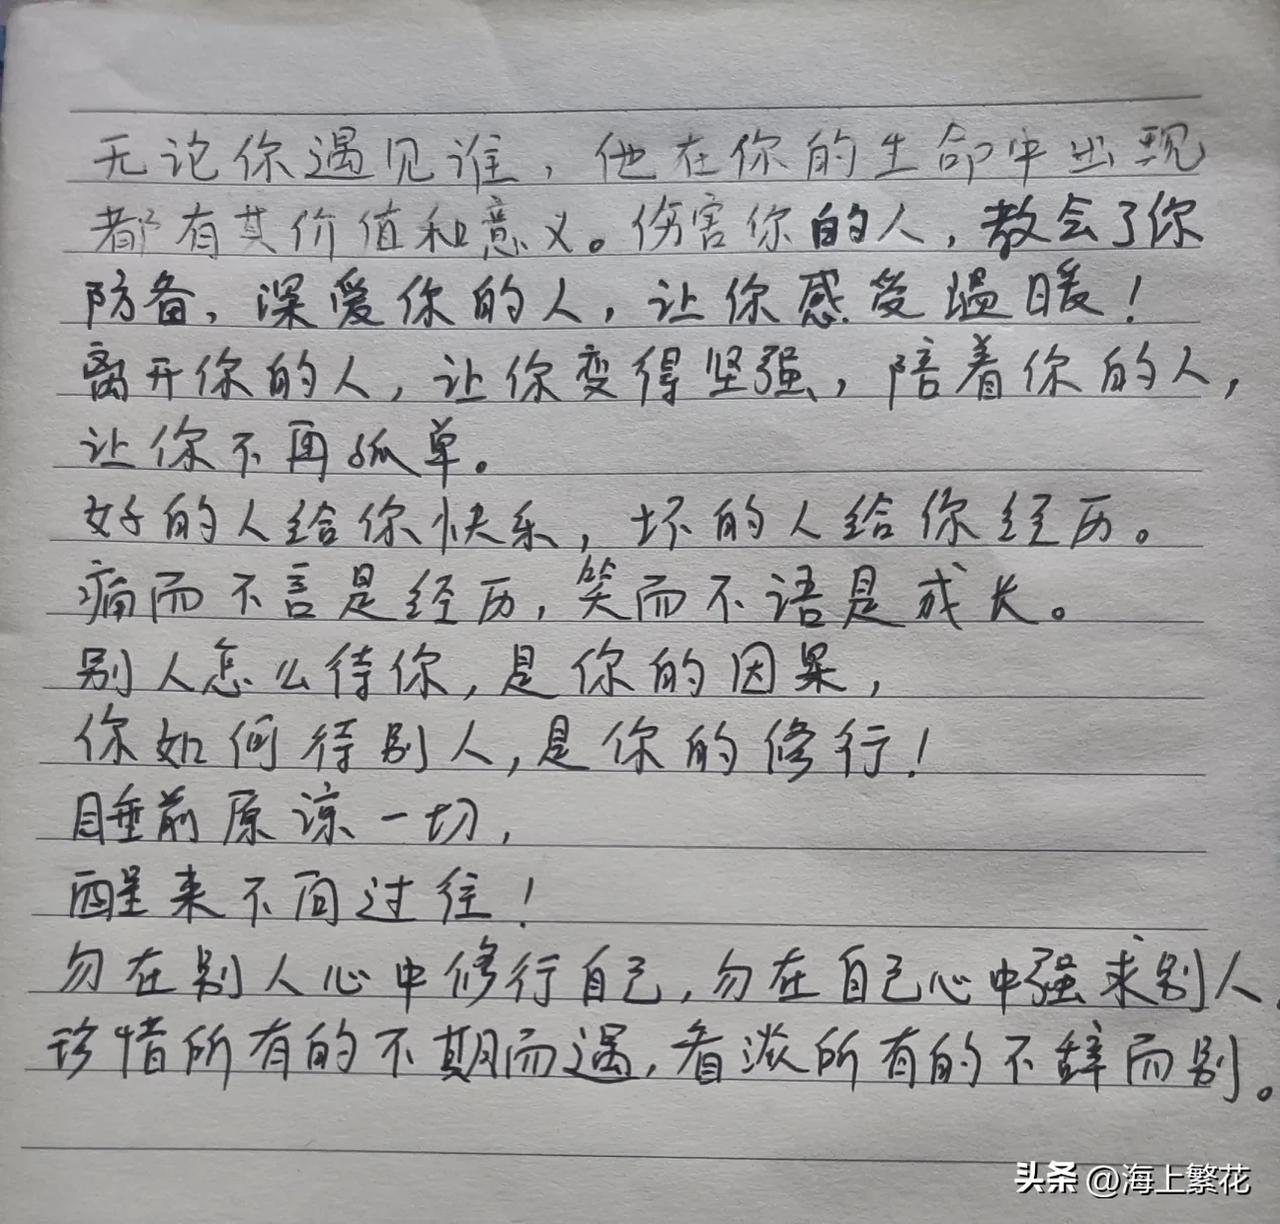 无论你遇见谁，他在你的生命中出现
都有其价值和意义。伤害你的人，教会了你
防备，深爱你的人，让你感受温暖！
离开你的人，让你变得坚强，陪着你的人，
让你不再孤单。
好的人给你快乐，坏的人给你经历。
痛而不言是经历，笑而不语是成长。
别人怎么待你，是你的因果，
你如何待别人，是你的修行！
睡前原谅一切，
醒来不问过往！
勿在别人心中修行自己，勿在自己心中强求别人，
珍惜所有的不期而遇，看淡所有的不辞而别。
头条 @海上繁花